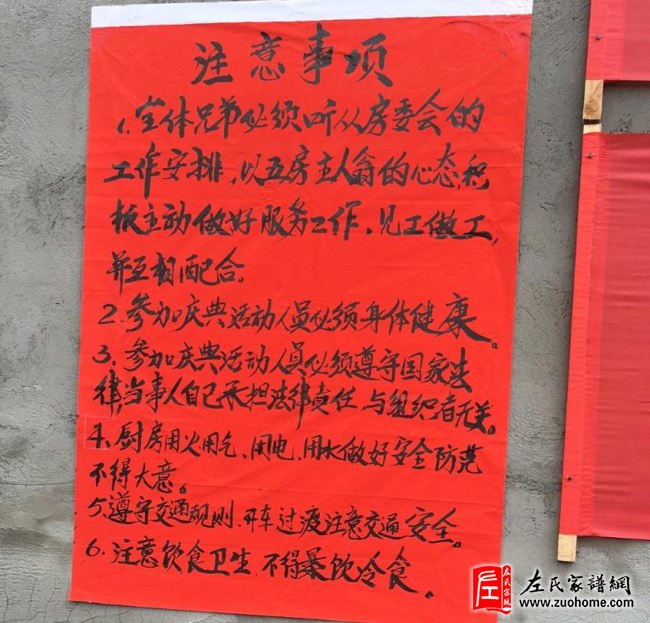 注意事项
1、全体兄弟必须听从房委会的
工作安排，以五房主人翁的心态，积
极主动做好服务工作，见工做工，
并互相配合。
2、参加庆典活动人员必须身体健康。
3、参加庆典活动人员必须遵守国家法
律，当事人自己承担法律责任，与组织者无关。
4、厨房用火用气、用电、用水做好安全防范
不得大意。
5、遵守交通规则，开车过渡注意交通安全。
6、注意饮食卫生，不得暴饮冷食。
左氏家谱
左氏家譜網
www.zuohome.com